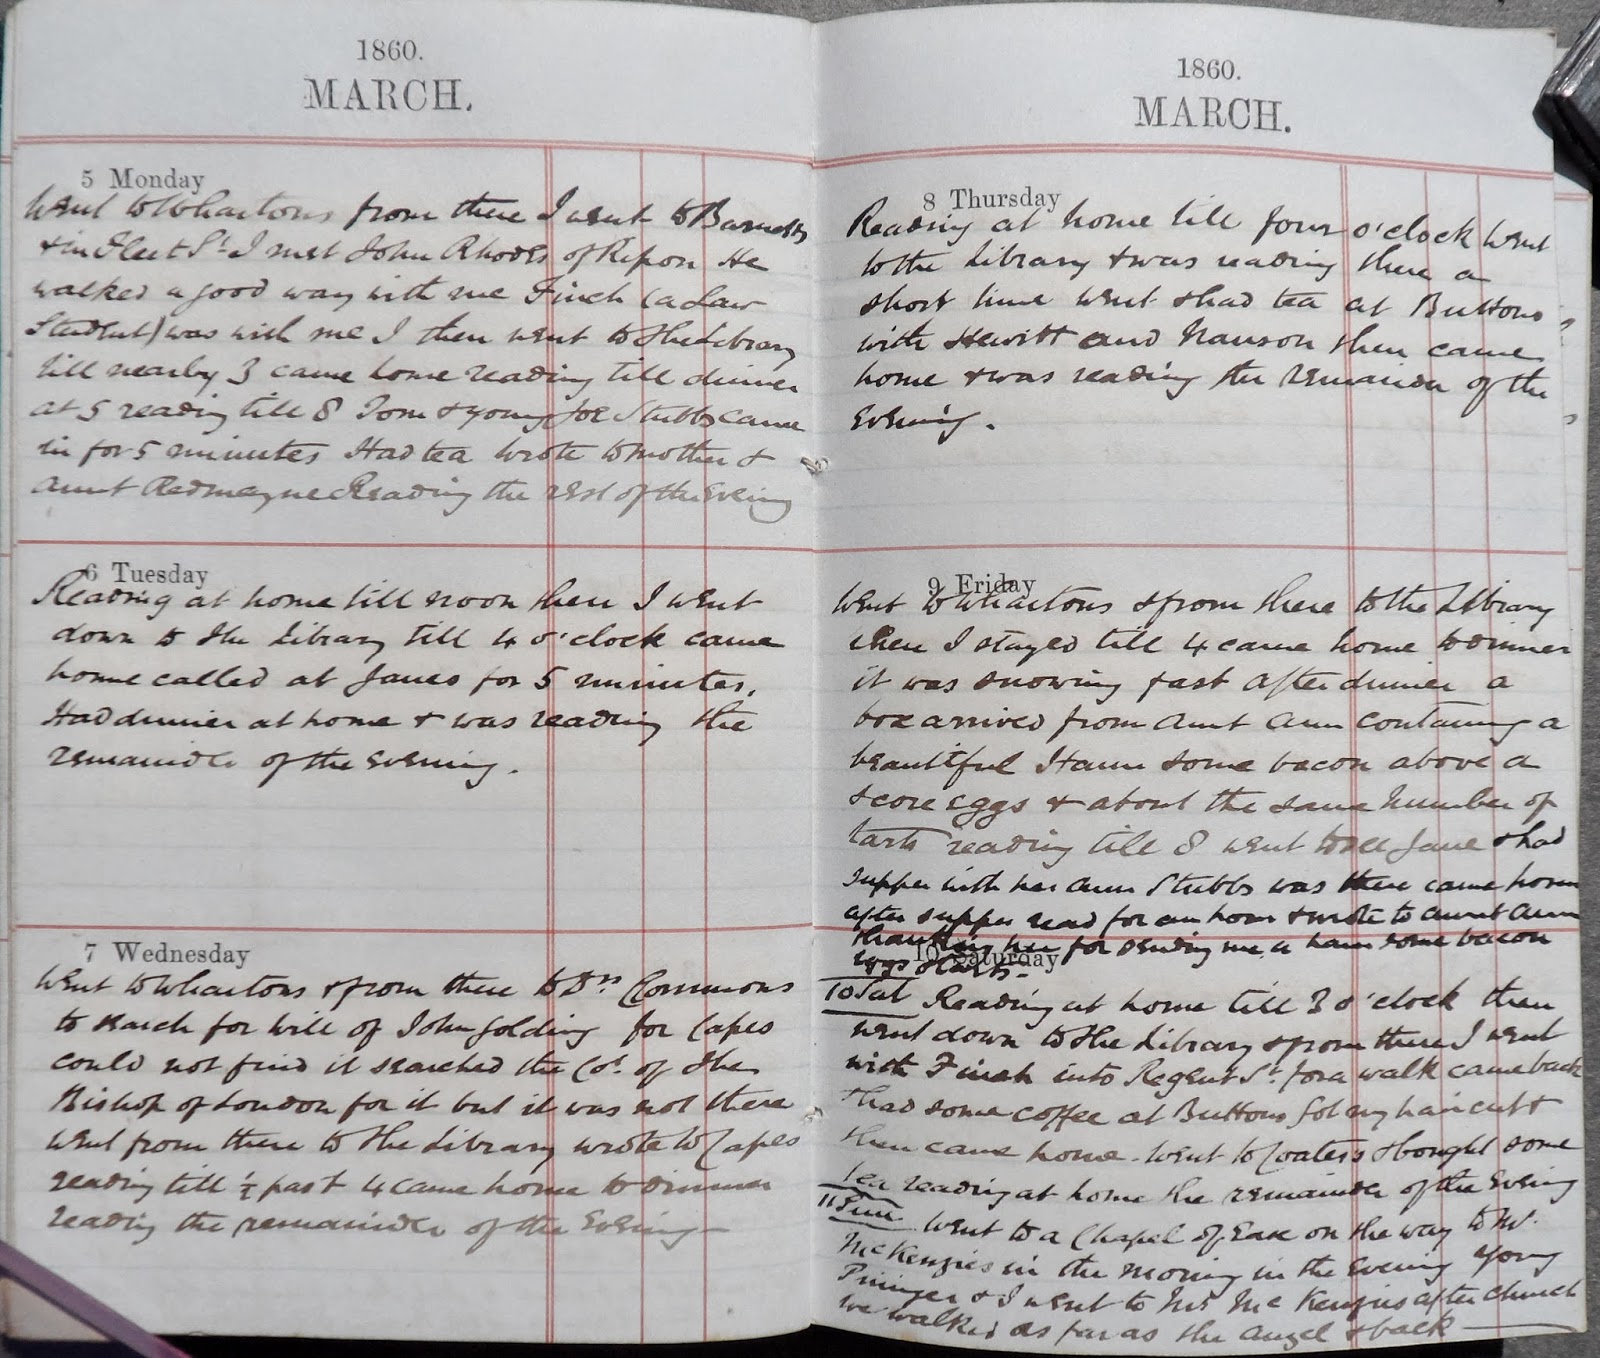 1860.
MARCH.
5 Monday
Went to Whartons from there I went to Barnetts
& in Fleet St. I met John Rhodes of Ripon He
walked a good way with me Finch (a Law
Student) was with me I then went to the Library
till nearby 3 came home reading till dinner
at 5 reading till 8 Tom & young Joe Stubbs came
in for 5 minutes Had tea wrote to mother &
aunt Redmayne Reading the rest of the evening
6 Tuesday
Reading at home till noon then I went
down to the Library till 4 o'clock came
home called at Janes for 5 minutes.
Had dinner at home & was reading the
remainder of the evening.
7 Wednesday
Went to Whartons & from there to Drs Commons
to search for will of John Golding for Capes
could not find it searched the Ct. of the
Bishop of London for it but it was not there
went from there to the Library wrote to Capes
reading till ½ past 4 came home to dinner
reading the remainder of the evening —
1860.
MARCH.
8 Thursday
Reading at home till four o'clock went
to the Library & was reading there a
short time went & had tea at Buttons
with Hewitt and Nanson then came
home & was reading the remainder of the
evening.
9 Friday
Went to Whartons & from there to the Library
where I stayed till 4 came home to dinner
it was snowing fast after dinner a
box arrived from aunt Ann containing a
beautiful Ham some bacon above a
score eggs & about the same number of
tarts reading till 8 went to see Jane & had
supper with her Ann Stubbs was there came home
after supper read for an hour & wrote to aunt Ann
thanking her for sending me a ham some bacon
eggs & tarts —
10 Saturday
10 Sat Reading at home till 3 o'clock then
went down to the Library & from there I went
with Finch into Regent St. for a walk came back
& had some coffee at Buttons Got my hair cut &
then came home. Went to Coaters & bought some
tea reading at home the remainder of the evening
11 Sun Went to a Chapel of Ease on the way to Mr.
McKenzies in the morning in the evening young
& I went to Mr McKenzies after church
we walked as far as the Angel & back —